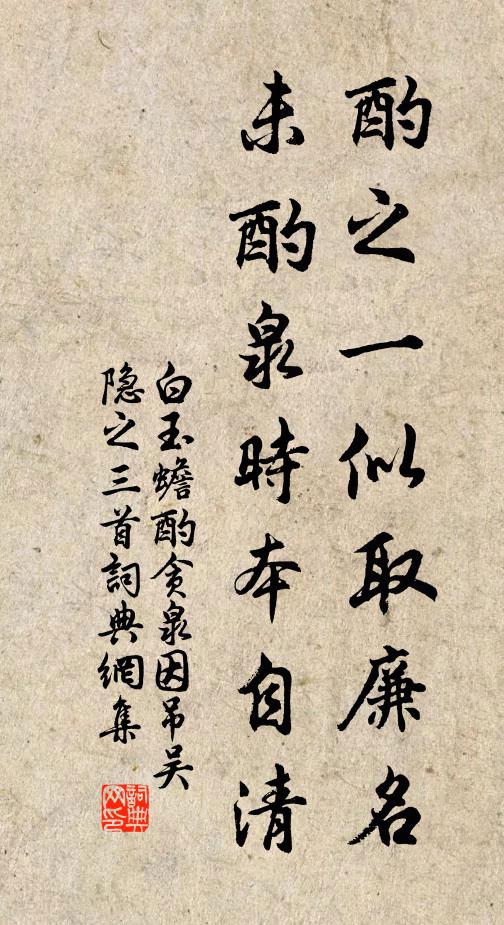 酌之一似取廉名
未酌泉時本自清
白玉蟾酌貪泉因吊吴
隐之三首詞典網集
詞典
网印